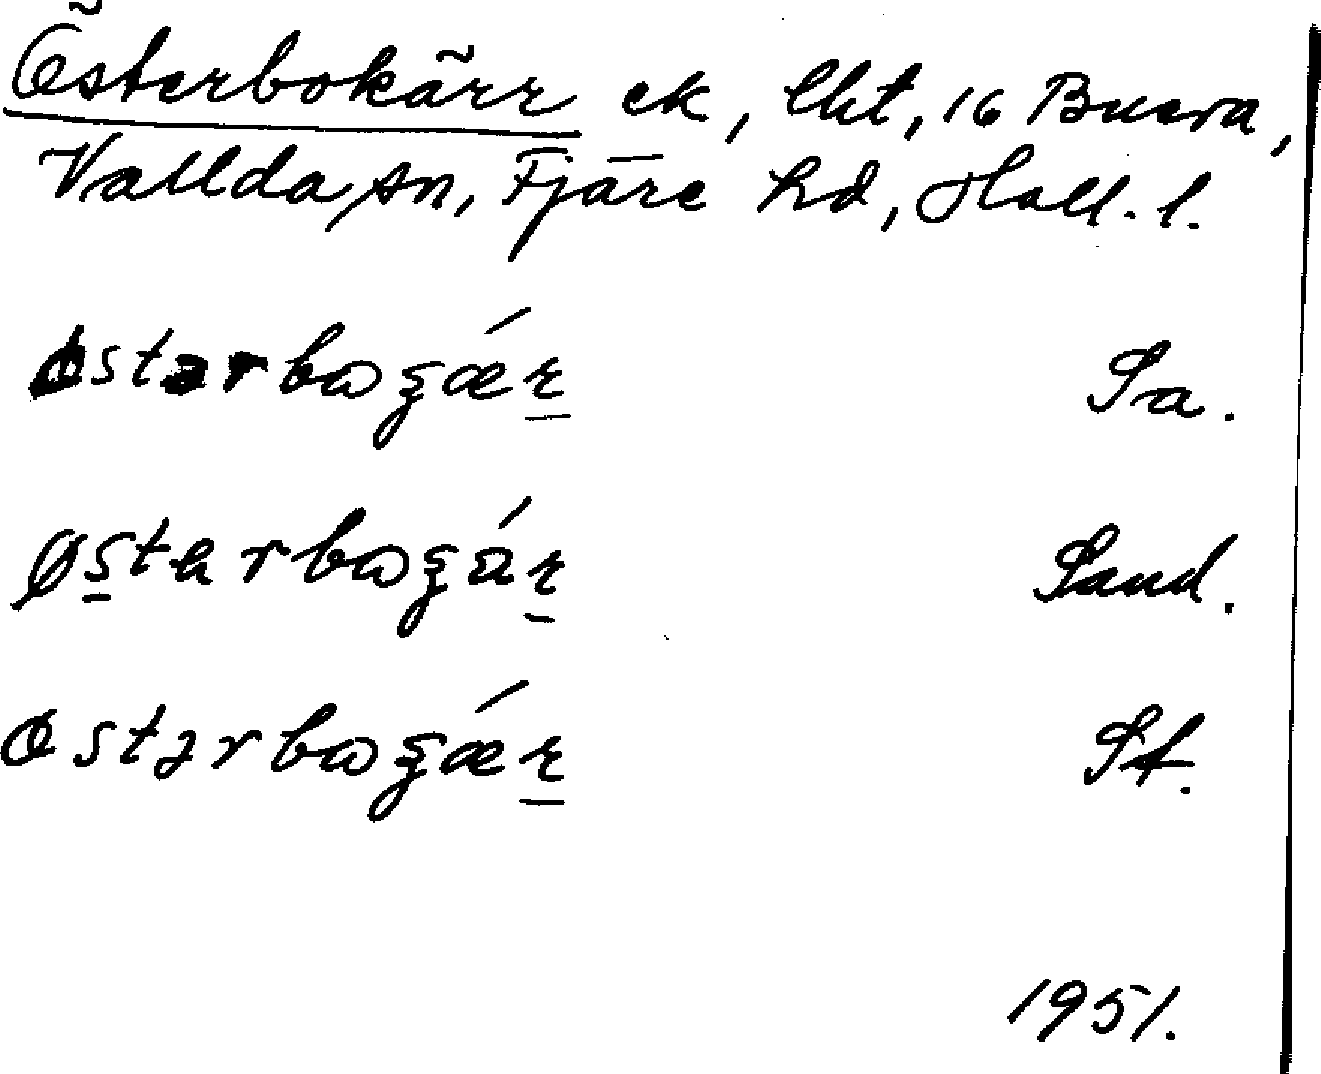 Österbokärr ek, lht, 16 Buera,
Vallda sn, Fjäre hd, Hall. l.
østərbɷgǽr Sa.
østarbɷgár Sand.
østərbɷgǽr Sf.
1951.